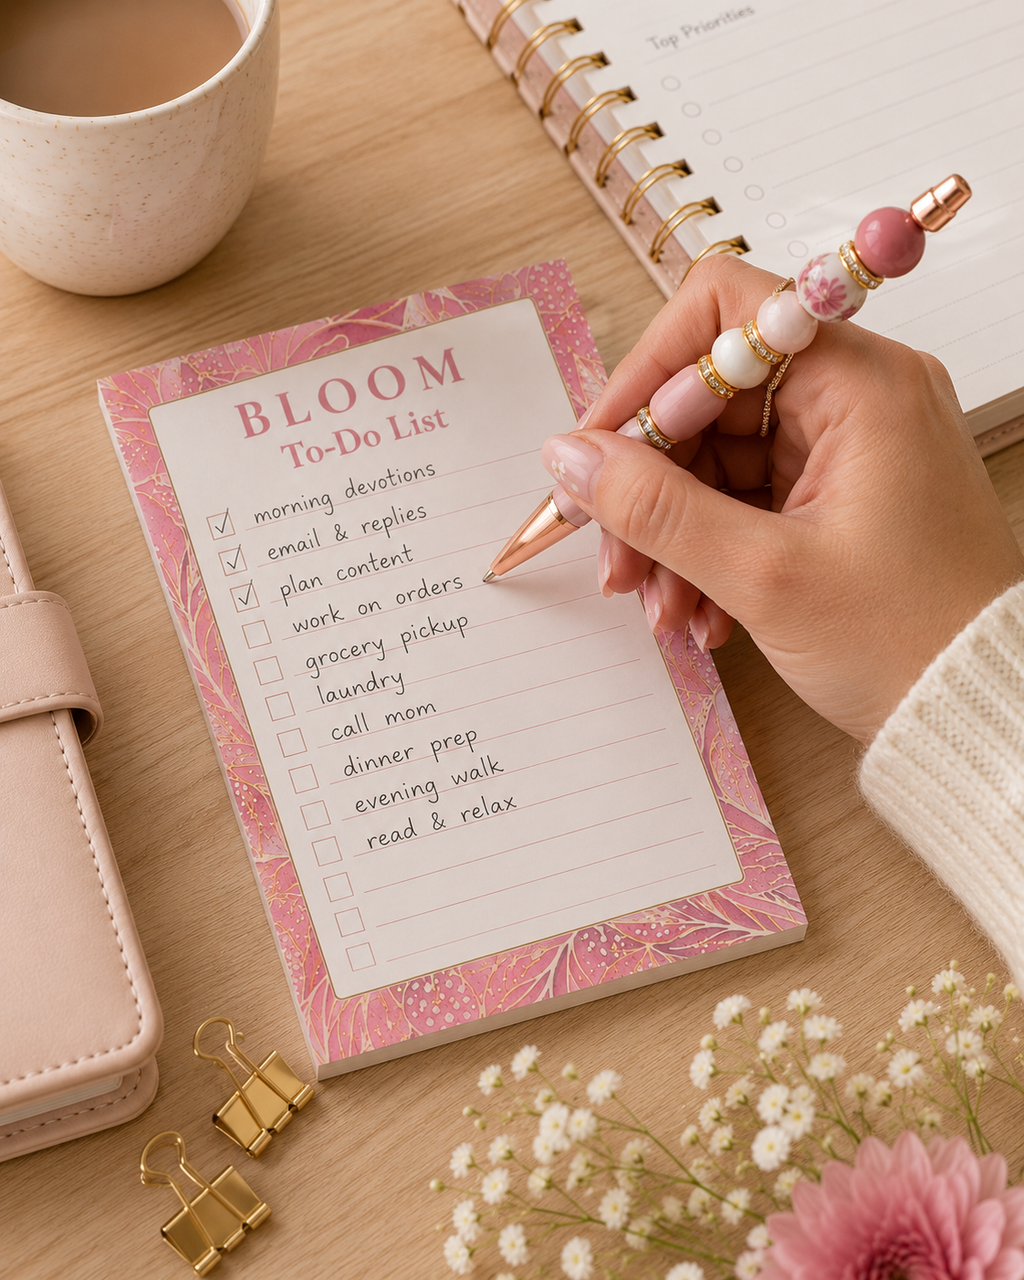 Top Priorities
BLOOM
To-Do List
morning devotions
email & replies
plan content
work on orders
grocery pickup
laundry
call mom
dinner prep
evening walk
read & relax